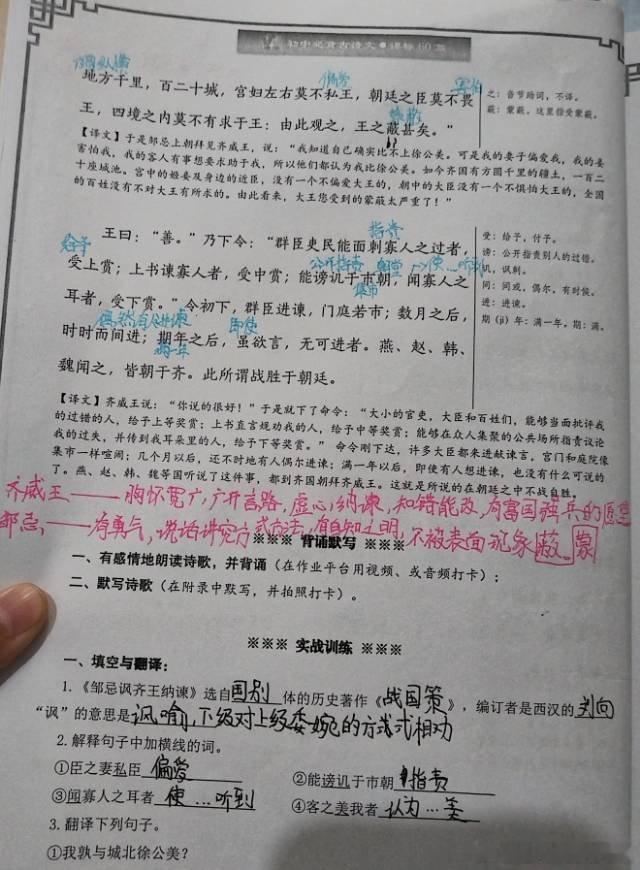 初中必背古诗文●课标60篇
偏爱
害怕
地方千里，百二十城，宫妇左右莫不私王，朝廷之臣莫不畏
王，四境之内莫不有求于王：由此观之，王之蔽甚矣。”
之：音节助词，不译。
蔽：蒙蔽，这里指受蒙蔽。
【译文】于是邹忌上朝拜见齐威王，说：“我知道自己确实比不上徐公美。可是我的妻子偏爱我，我的妾
害怕我，我的客人有事想要求助于我，所以他们都认为我比徐公美。如今齐国有方圆千里的疆土，一百二
十座城池。宫中的姬妾及身边的近臣，没有一个不偏爱大王的，朝中的大臣没有一个不惧怕大王的，全国
的百姓没有不对大王有所求的。由此看来，大王您受到的蒙蔽太严重了！”
指责
王曰：“善。”乃下令：“群臣吏民能面刺寡人之过者，
给予
公开指责
使…听到
受上赏；上书谏寡人者，受中赏；能谤讥于市朝，闻寡人之
耳者，受下赏。”令初下，群臣进谏，门庭若市；数月之后，
偶然有人进谏
即使
时时而间进；期年之后，虽欲言，无可进者。燕、赵、韩、
满一年
魏闻之，皆朝于齐。此所谓战胜于朝廷。
受：给予，付予。
谤：公开指责别人的过错。
讥，讽刺。
间：间或，偶尔，有时候。
进：进谏。
期（jī）年：满一年。期：满。
【译文】齐威王说：“你说的很好！”于是就下了命令：“大小的官吏，大臣和百姓们，能够当面批评我
的过错的人，给予上等奖赏；上书直言规劝我的人，给予中等奖赏；能够在众人集聚的公共场所指责议论
我的过失，并传到我耳朵里的人，给予下等奖赏。”命令刚下达，许多大臣都来进献谏言，宫门和庭院像
集市一样喧闹；几个月以后，还不时地有人偶尔进谏；满一年以后，即使有人想进谏，也没有什么可说的
了。燕、赵、韩、魏等国听说了这件事，都到齐国朝拜齐威王。这就是所说的在朝廷之中不战自胜。
齐威王——胸怀宽广，广开言路，虚心纳谏，知错能改，有富国强兵的愿望
邹忌——有勇气，说话讲究方式方法，有自知之明，不被表面现象蒙蔽 蒙
※※※ 背诵默写 ※※※
一、有感情地朗读诗歌，并背诵（在作业平台用视频、或音频打卡）；
二、默写诗歌（在附录中默写，并拍照打卡）。
※※※ 实战训练 ※※※
一、填空与翻译：
1.《邹忌讽齐王纳谏》选自国别体的历史著作《战国策》，编订者是西汉的刘向
“讽”的意思是讽喻，下级对上级委婉的方式式相劝
2.解释句子中加横线的词。
①臣之妻私臣 偏爱
②能谤讥于市朝 指责
③闻寡人之耳者 使…听到
④客之美我者 认为…美
3.翻译下列句子。
①我孰与城北徐公美？